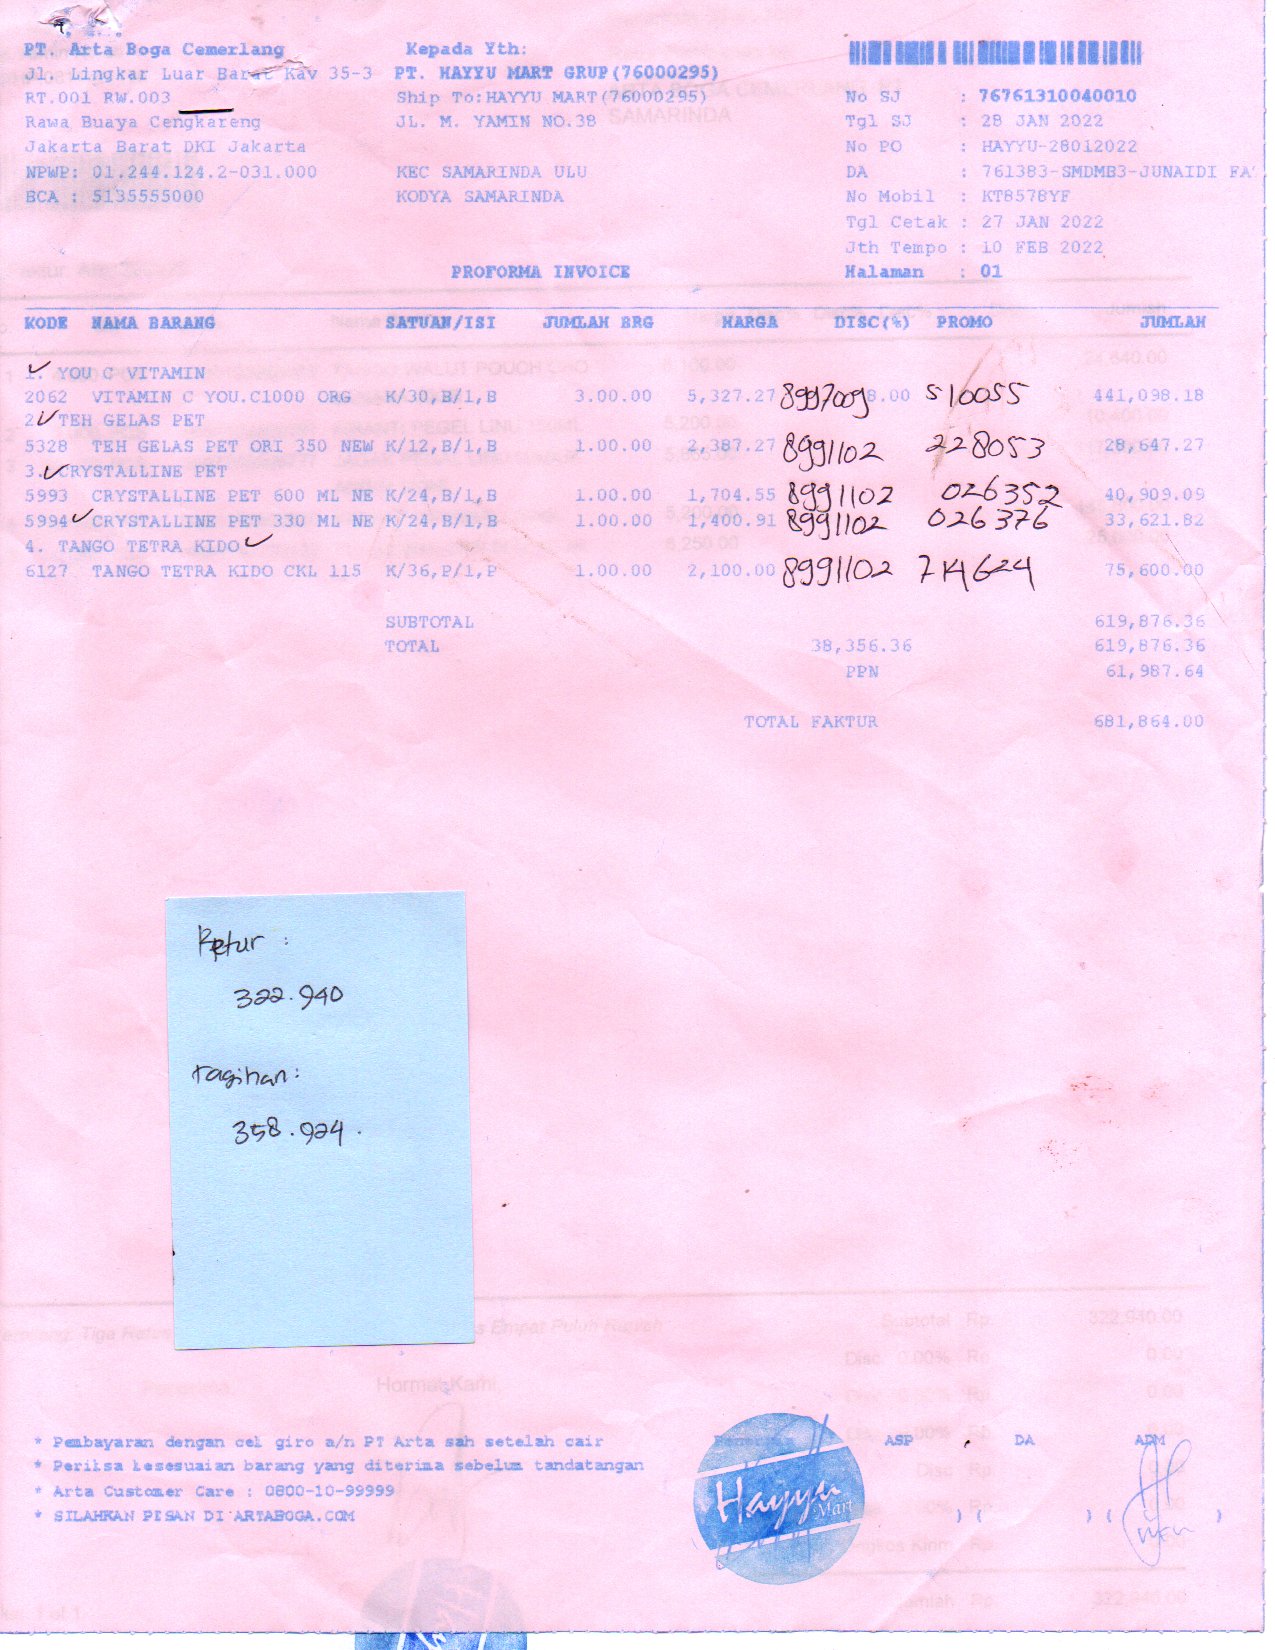 PT. Arta Boga Cemerlang
Jl. Lingkar Luar Barat Kav 35-3
RT.001 RW.003
Rawa Buaya Cengkareng
Jakarta Barat DKI Jakarta
NPWP: 01.244.124.2-031.000
BCA : 5135555000
Kepada Yth:
PT. HAYYU MART GRUP(76000295)
Ship To:HAYYU MART(76000295)
JL. M. YAMIN NO.38
KEC SAMARINDA ULU
KODYA SAMARINDA
No SJ : 76761310040010
Tgl SJ : 28 JAN 2022
No PO : HAYYU-28012022
DA : 761383-SMDMB3-JUNAIDI FA
No Mobil : KT8578YF
Tgl Cetak : 27 JAN 2022
Jth Tempo : 10 FEB 2022
Halaman : 01
PROFORMA INVOICE
KODE NAMA BARANG SATUAN/ISI JUMLAH BRG HARGA DISC(%) PROMO JUMLAH
1. YOU C VITAMIN
2062 VITAMIN C YOU.C1000 ORG K/30,B/1,B 3.00.00 5,327.27 8997009 8.00 510055 441,098.18
2. TEH GELAS PET
5328 TEH GELAS PET ORI 350 NEW K/12,B/1,B 1.00.00 2,387.27 8991102 228053 28,647.27
3. CRYSTALLINE PET
5993 CRYSTALLINE PET 600 ML NE K/24,B/1,B 1.00.00 1,704.55 8991102 026352 40,909.09
5994 CRYSTALLINE PET 330 ML NE K/24,B/1,B 1.00.00 1,400.91 8991102 026376 33,621.82
4. TANGO TETRA KIDO
6127 TANGO TETRA KIDO CKL 115 K/36,P/1,P 1.00.00 2,100.00 8991102 714624 75,600.00
SUBTOTAL 619,876.36
TOTAL 38,356.36 619,876.36
PPN 61,987.64
TOTAL FAKTUR 681,864.00
Retur :
322.940
tagihan:
358.924.
Subtotal Rp. 322,940.00
Hormat Kami,
* Pembayaran dengan cek giro a/n PT Arta sah setelah cair
* Periksa kesesuaian barang yang diterima sebelum tandatangan
* Arta Customer Care : 0800-10-99999
* SILAHKAN PESAN DI ARTABOGA.COM
Penerima ASP DA ADM
Hayyu Mart
) ( ) ( )